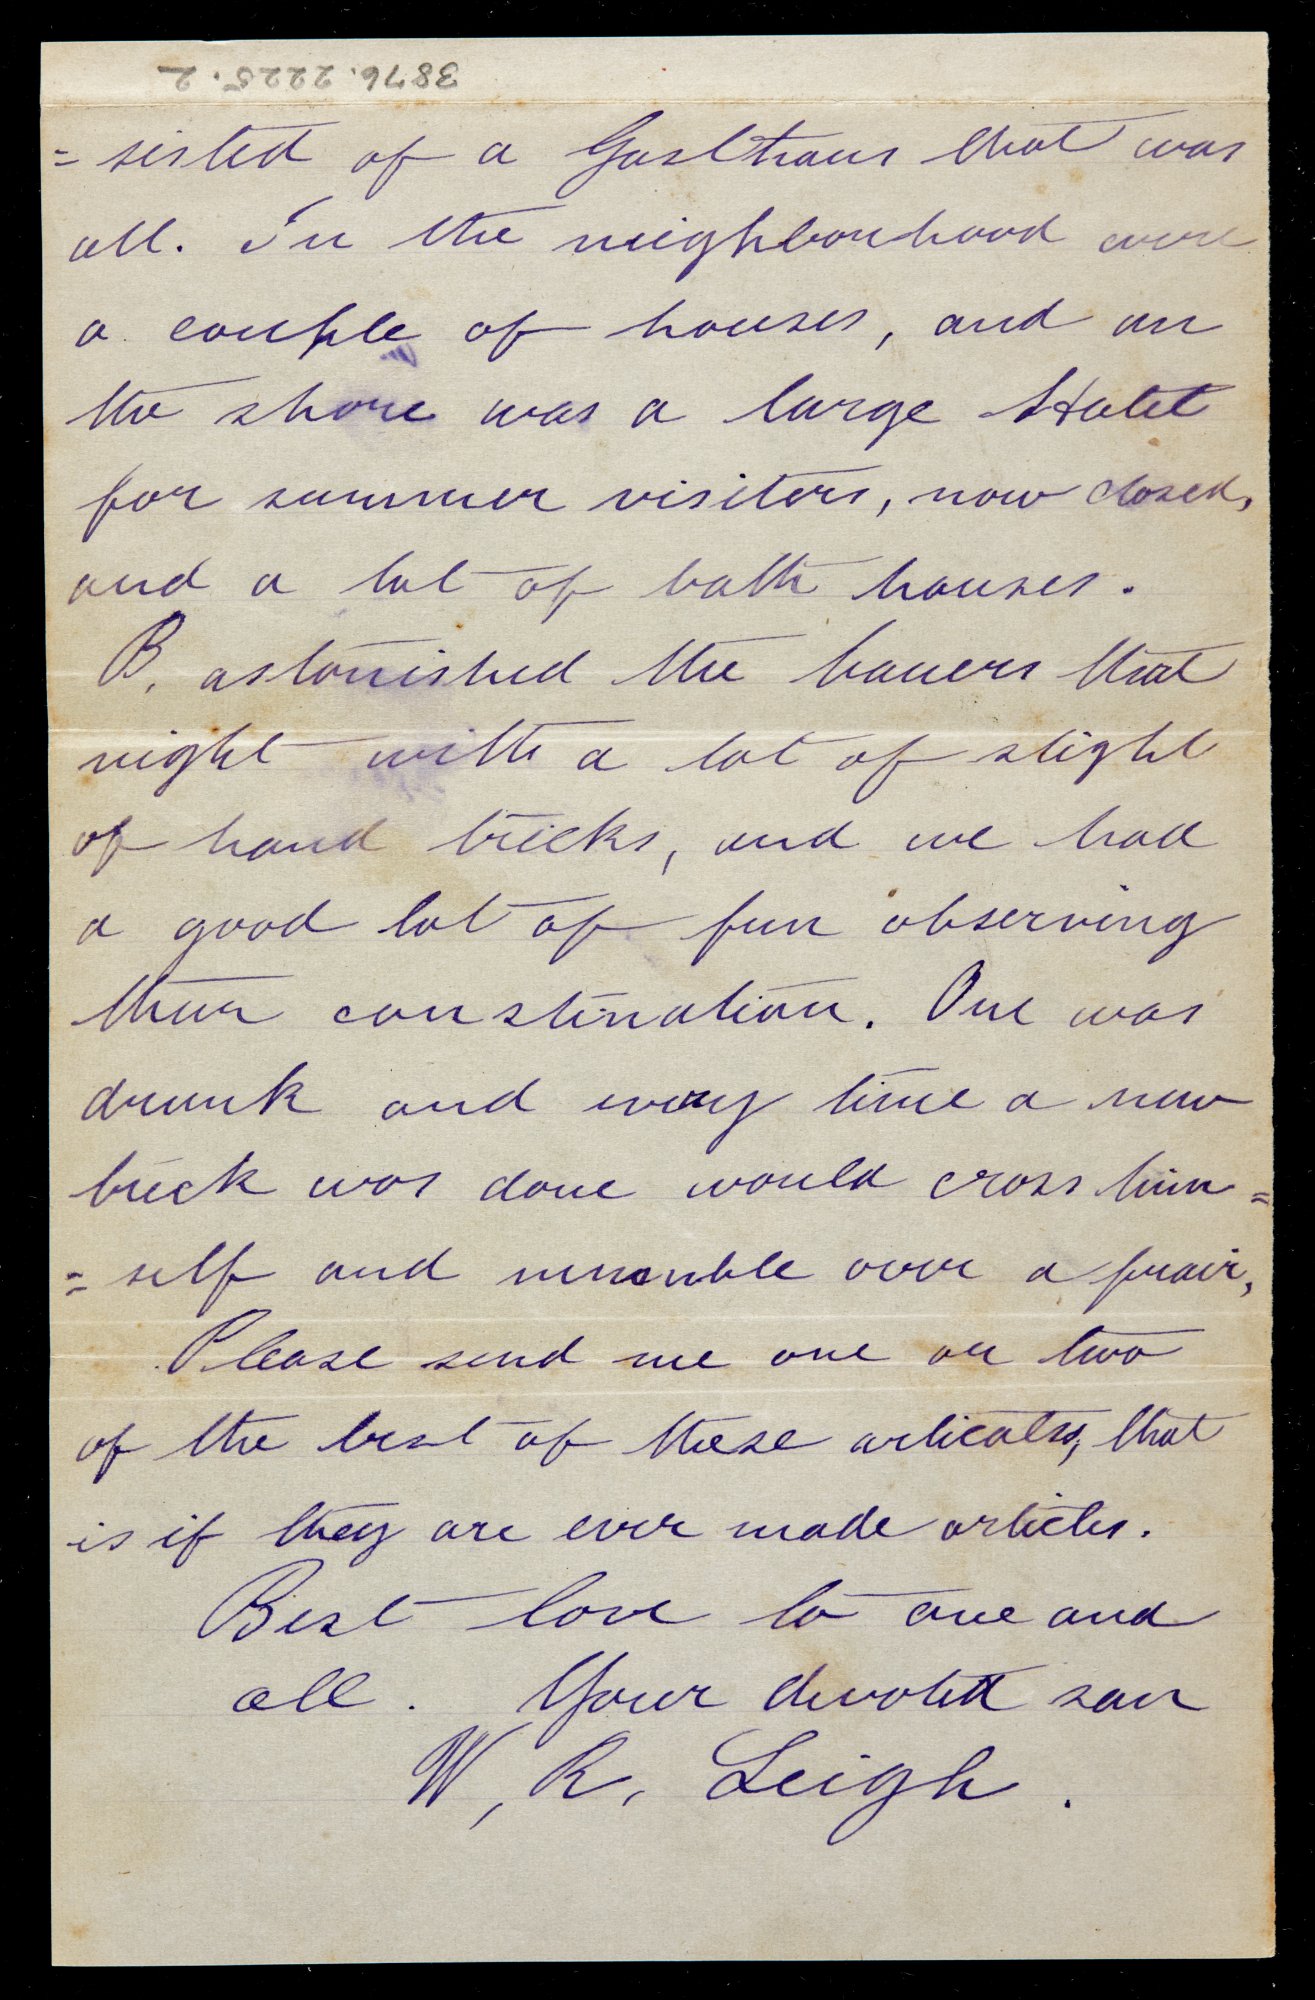 3876.2225.2
=sisted of a Gasthaus that was
all. In the neighbourhood were
a couple of houses, and on
the shore was a large Hotel
for summer visitors, now closed,
and a lot of bath houses.
B. astonished the bauers that
night with a lot of slight
of hand tricks, and we had
a good lot of fun observing
their consternation. One was
drunk and every time a new
trick was done would cross him=
=self and mumble over a prair,
Please send me one or two
of the best of these articals, that
is if they are ever made articles.
Best love to one and
all. Your devoted son
W, R, Leigh.